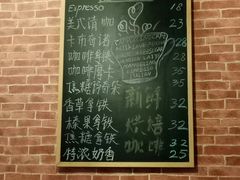 Espresso 18
美式清咖 23
卡布奇诺 28
咖啡拿铁 28
咖啡摩卡 32
焦糖玛奇朵 35
香草拿铁 32
榛果拿铁 32
焦糖拿铁 32
特浓奶香 25
新鲜
烘焙
咖啡